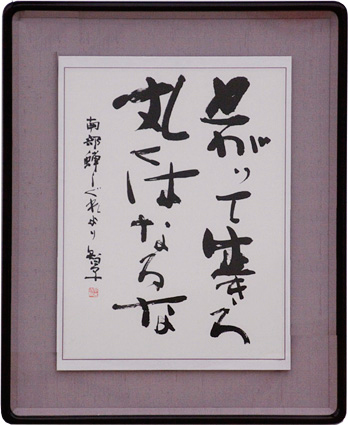 とがって生きろ
丸くはなるな
南部蝉しぐれより